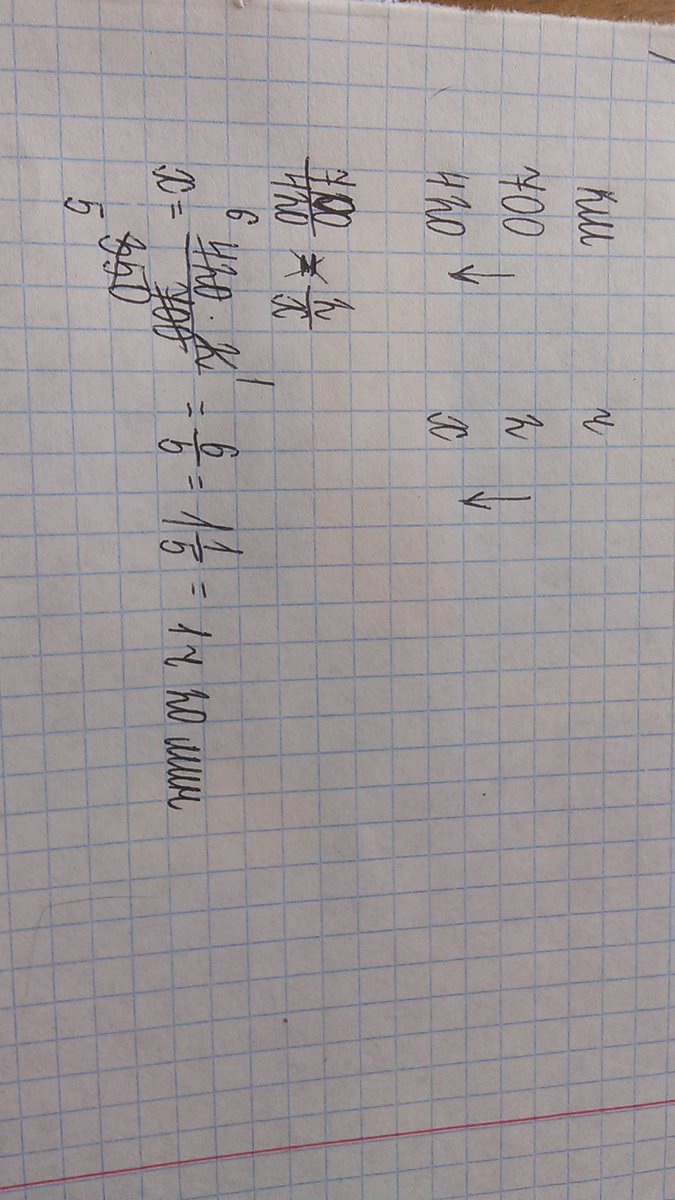 км ч
700 2
420 x
700/420 = 2/x
6 1
x = 420 · 2 / 700 = 6/5 = 1 1/5 = 1 ч 20 мин
350
5